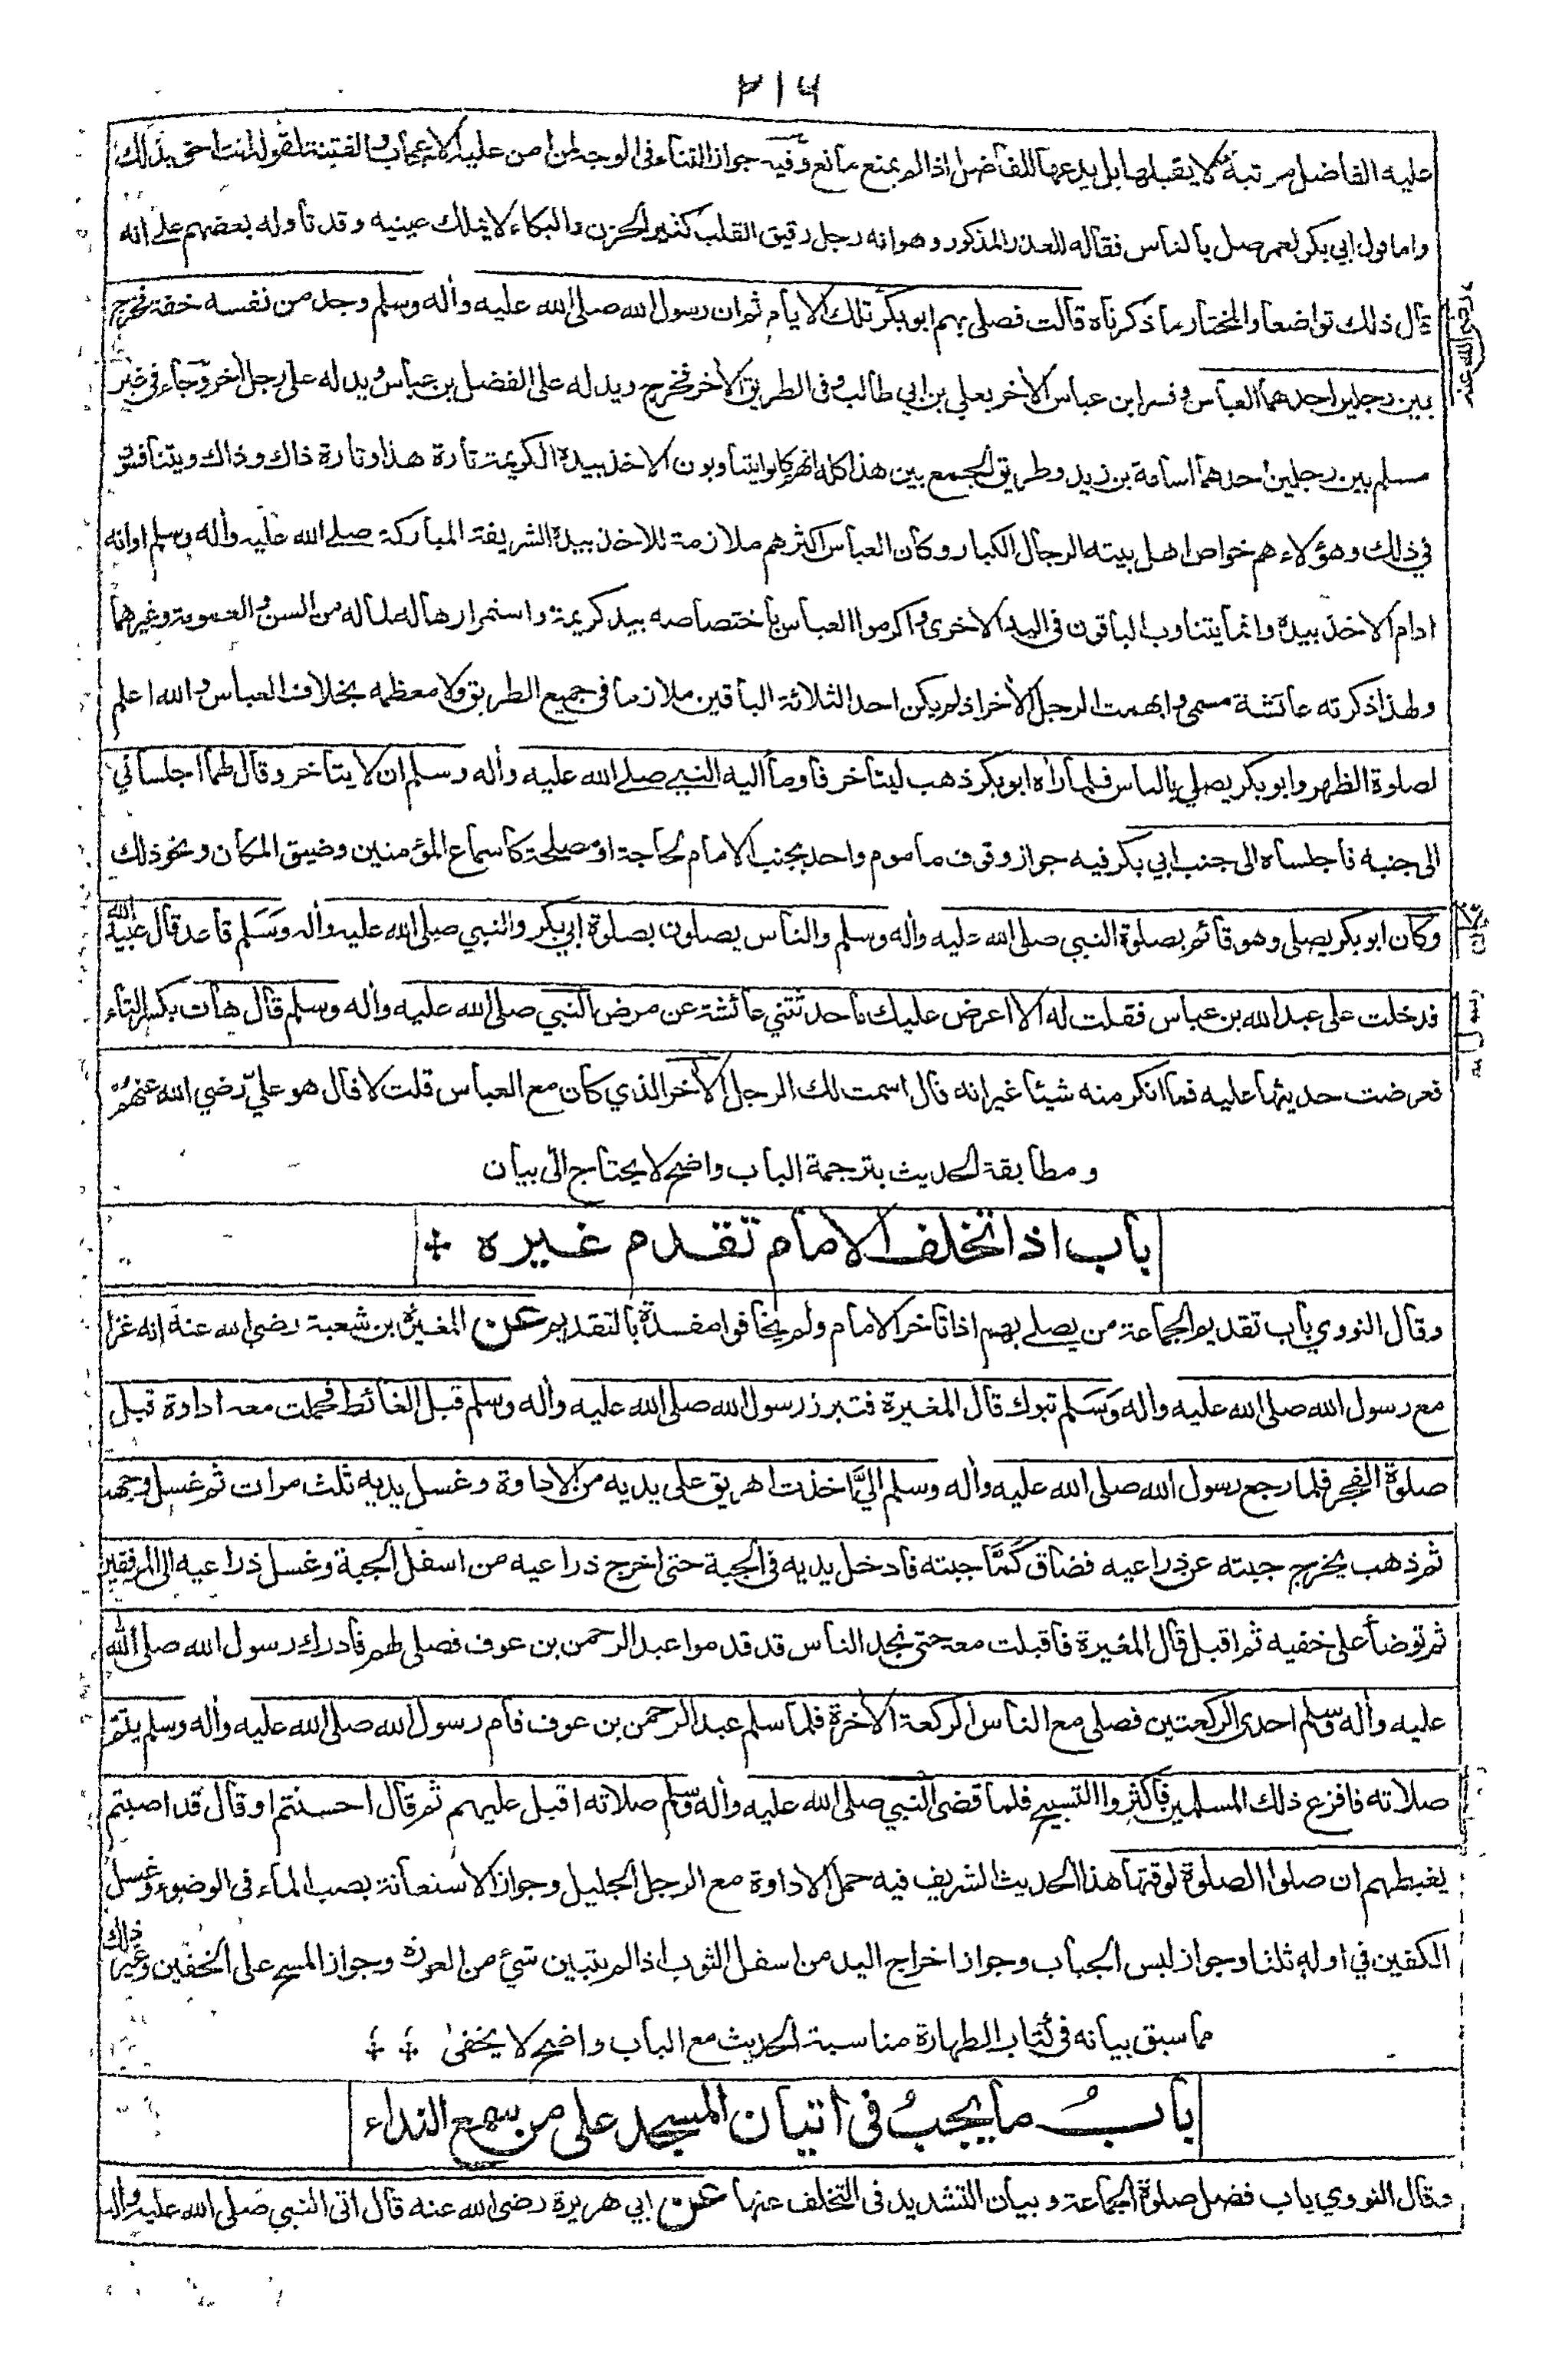 ٢١٦
عليه الفاضل مرتبة لا يقبلها بل يدعها للفاضل اذا لم يمنع مانع وفيه جواز الثناء فى الوجه لمن امن عليه الاعجاب والفتنة لقوله انت احق بذلك
واما قول ابي بكر لعمر صل بالناس فقاله للعذر المذكور وهو انه رجل رقيق القلب كثير الحزن والبكاء لا يملك عينيه وقد تأوله بعضهم على انه
قال ذلك تواضعا والمختار ما ذكرناه قالت فصلى بهم ابو بكر تلك الايام ثم ان رسول الله صلى الله عليه وأله وسلم وجد من نفسه خفة فخرج
بين رجلين احدهما العباس وفسر ابن عباس الأخر بعلي بن ابي طالب وفى الطريق الأخر فخرج ويد له على الفضل بن عباس ويد له على رجل أخر وجاء فى غير
مسلم بين رجلين احدهما اسامة بن زيد وطريق الجمع بين هذا كله انهم كانوا يتناوبون الاخذ بيده الكريمة تارة هذا وتارة ذاك وذاك ويتنافسون
في ذلك وهؤلاء هم خواص اهل بيته الرجال الكبار وكان العباس اكثرهم ملازمة للاخذ بيده الشريفة المباركة صلى الله عليه وأله وسلم او انه
ادام الاخذ بيده وانما يتناوب الباقون فى اليد الاخرى واكرموا العباس باختصاصه بيد كريمة واستمرارها له لما له من السن والعمومة وغيرهما
ولهذا ذكرته عائشة مسمى وابهمت الرجل الأخر اذ لم يكن احد الثلاثة الباقين ملازما فى جميع الطريق ولا معظمه بخلاف العباس والله اعلم
لصلوة الظهر وابو بكر يصلي بالناس فلما رأه ابو بكر ذهب ليتأخر فأومأ اليه النبي صلى الله عليه وأله وسلم ان لا يتأخر وقال لهما اجلساني
الى جنبه فاجلساه الى جنب ابي بكر فيه جواز وقوف ماموم واحد بجنب الامام لحاجة او مصلحة كاسماع المؤمنين وضيق المكان ونحو ذلك
وكان ابو بكر يصلى وهو قائم بصلوة النبي صلى الله عليه وأله وسلم والناس يصلون بصلوة ابي بكر والنبي صلى الله عليه وأله وسلم قاعد قال عبيد الله
فدخلت على عبد الله بن عباس فقلت له الا اعرض عليك ما حدثتني عائشة عن مرض النبي صلى الله عليه وأله وسلم قال هات بكسر التاء
فعرضت حديثها عليه فما انكر منه شيئا غير انه قال اسمت لك الرجل الأخر الذي كان مع العباس قلت لا قال هو عليّ رضي الله عنهم
ومطابقة الحديث بترجمة الباب واضح لا يحتاج الى بيان
باب اذا تخلف الامام تقدم غيره
وقال النووي باب تقديم الجماعة من يصلي بهم اذا تأخر الامام ولم يخافوا مفسدة بالتقديم عن المغيرة بن شعبة رضى الله عنه انه غزا
مع رسول الله صلى الله عليه وأله وسلم تبوك قال المغيرة فتبرز رسول الله صلى الله عليه وأله وسلم قبل الغائط فحملت معه اداوة قبل
صلوة الفجر فلما رجع رسول الله صلى الله عليه وأله وسلم اليَّ اخذت اهريق على يديه من الاداوة وغسل يديه ثلث مرات ثم غسل وجهه
ثم ذهب يخرج جبته عن ذراعيه فضاق كُمَّا جبته فادخل يديه فى الجبة حتى اخرج ذراعيه من اسفل الجبة وغسل ذراعيه الى المرفقين
ثم توضأ على خفيه ثم اقبل قال المغيرة فاقبلت معه حتى نجد الناس قد قدموا عبد الرحمن بن عوف فصلى لهم فأدرك رسول الله صلى الله
عليه وأله وسلم احدى الركعتين فصلى مع الناس الركعة الأخرة فلما سلم عبد الرحمن بن عوف قام رسول الله صلى الله عليه وأله وسلم يتم
صلاته فافزع ذلك المسلمين فأكثروا التسبيح فلما قضى النبي صلى الله عليه وأله وسلم صلاته اقبل عليهم ثم قال احسنتم او قال قد اصبتم
يغبطهم ان صلوا الصلوة لوقتها هذا الحديث الشريف فيه حمل الاداوة مع الرجل الجليل وجواز الاستعانة بصب الماء فى الوضوء وغسل
الكفين في اوله ثلثا وجواز لبس الجباب وجواز اخراج اليد من اسفل الثوب اذا لم يتبين شئ من العورة وجواز المسح على الخفين وغير ذلك
ما سبق بيانه فى كتاب الطهارة مناسبة الحديث مع الباب واضح لا يخفى
بابُ ما يجبُ فى اتيان المسجد على من سمع النداء
وقال النووي باب فضل صلوة الجماعة وبيان التشديد فى التخلف عنها عن ابي هريرة رضى الله عنه قال اتى النبي صلى الله عليه وأله